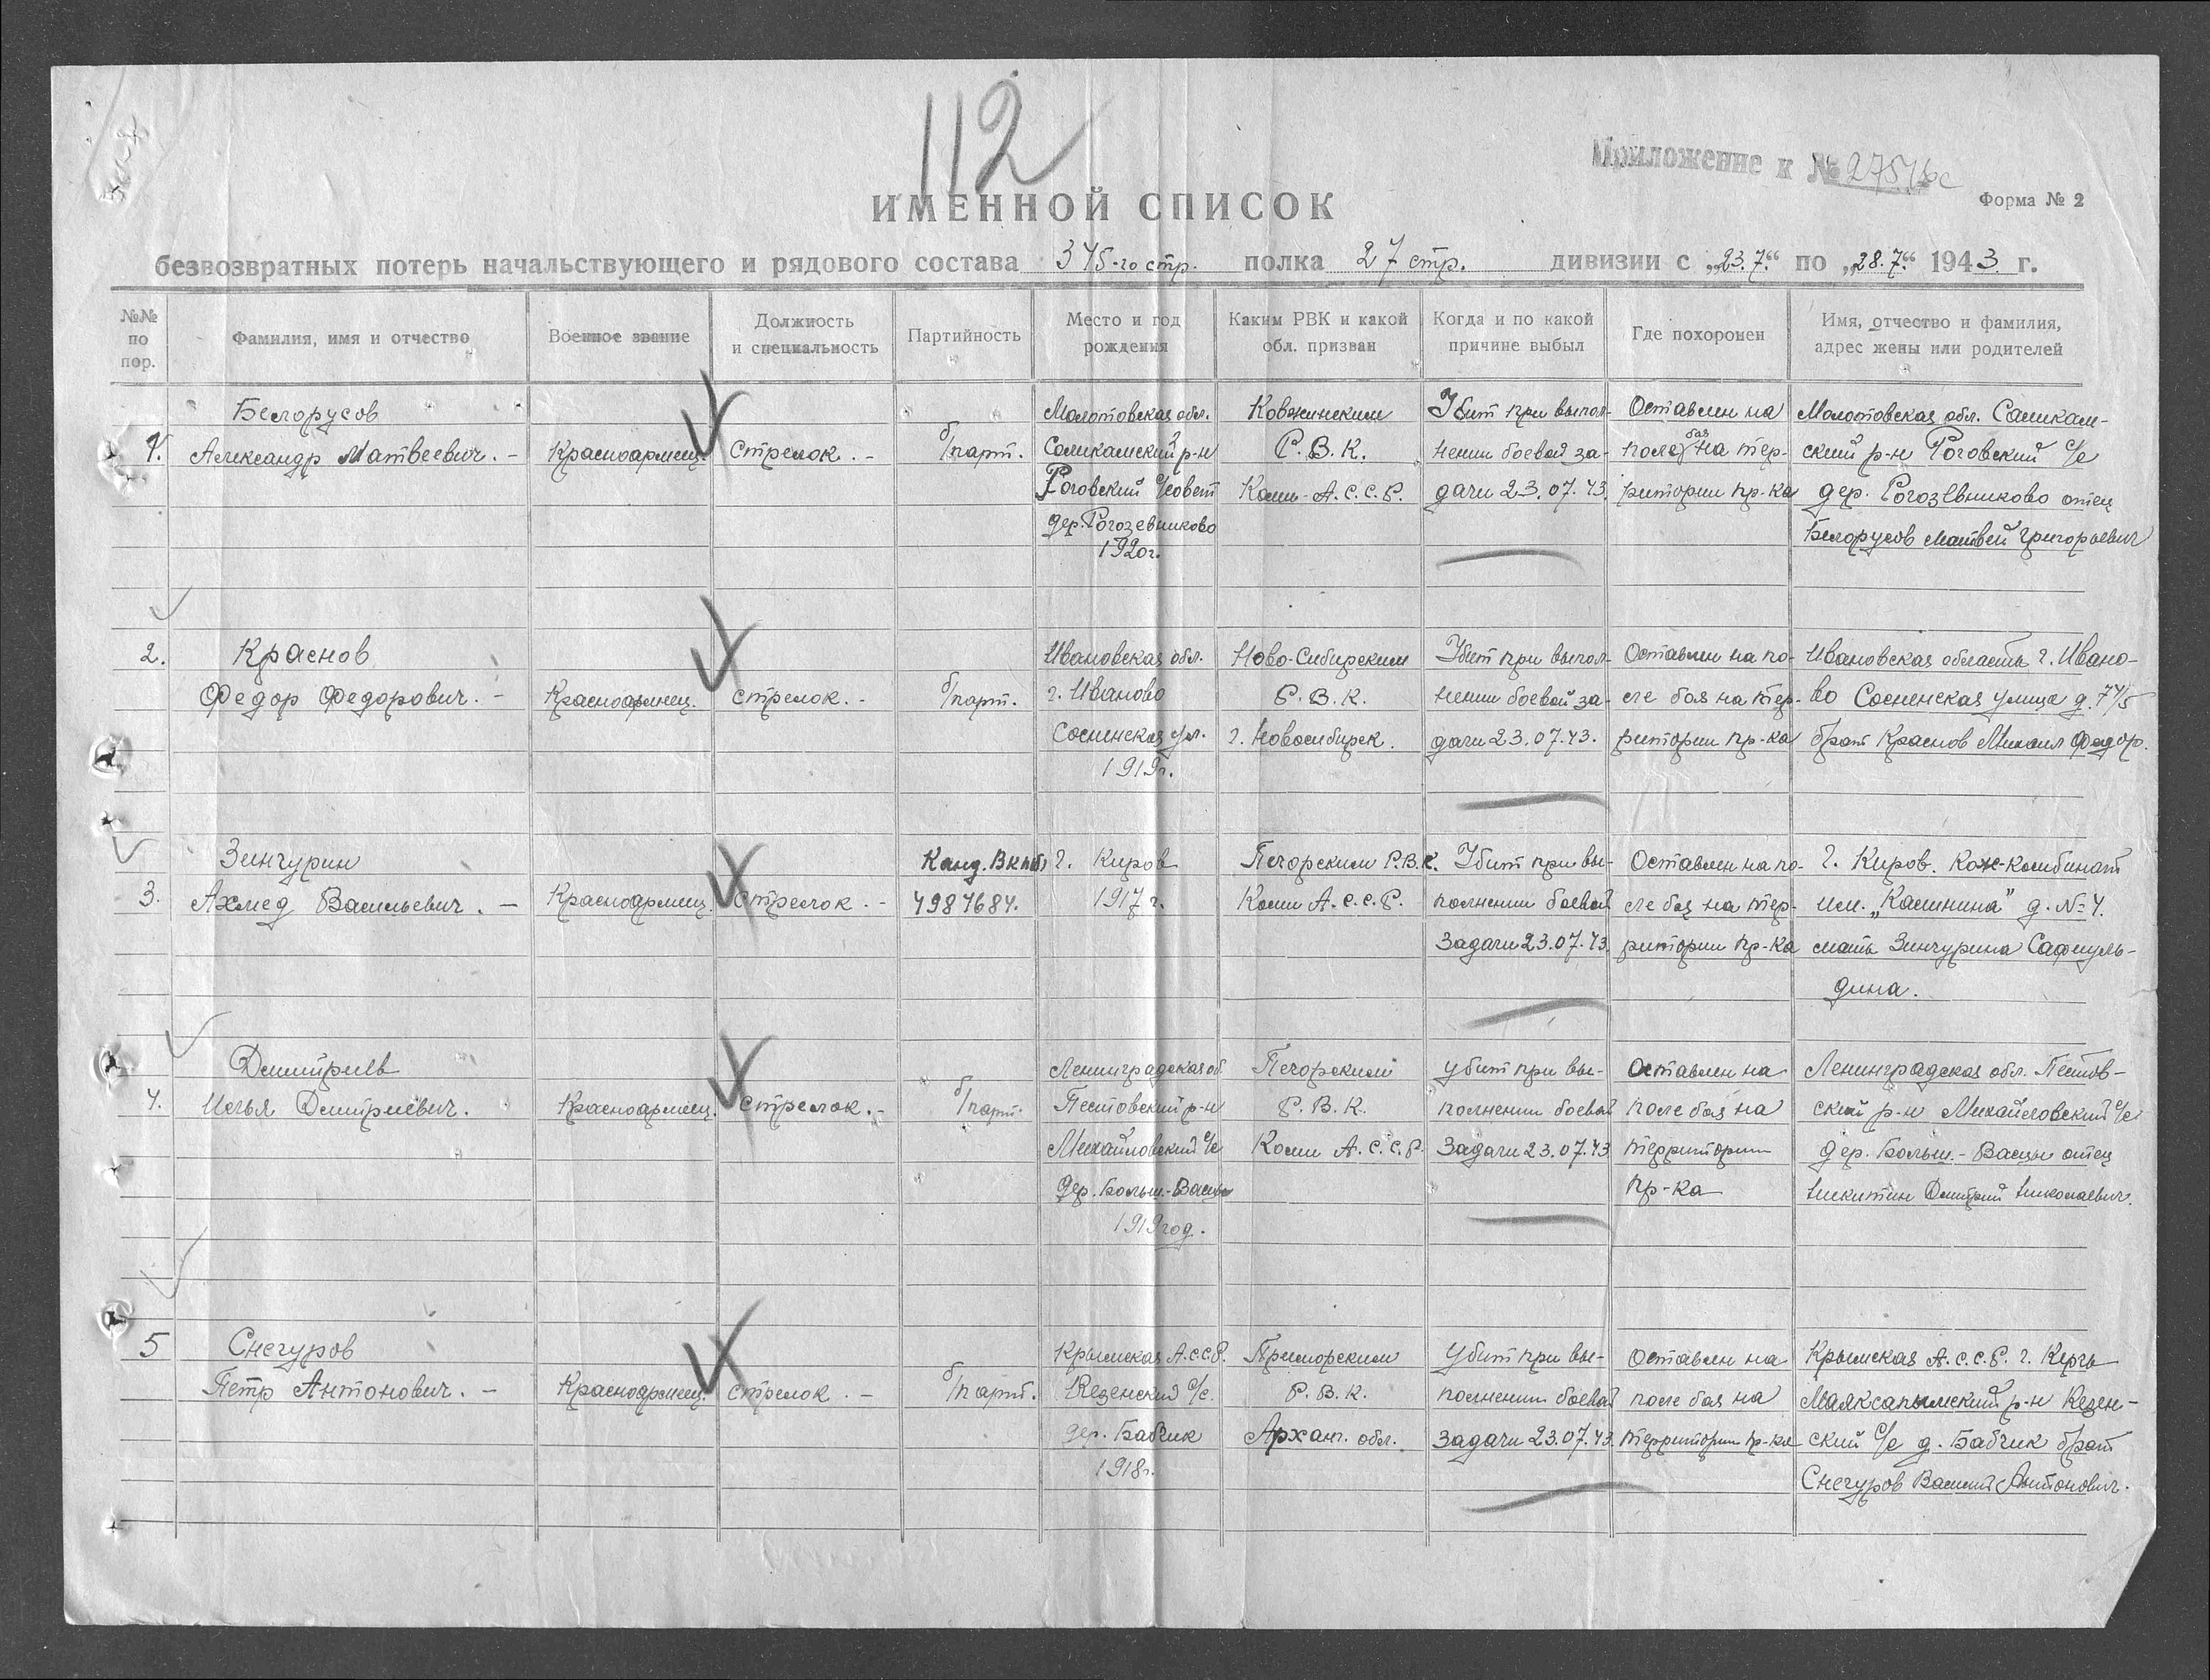 112
Приложение к № 27546с
Форма № 2
ИМЕННОЙ СПИСОК
безвозвратных потерь начальствующего и рядового состава 345-го стр. полка 27 стр. дивизии с „23.7.“ по „28.7.“ 1943 г.
№№ по пор.
Фамилия, имя и отчество
Военное звание
Должность и специальность
Партийность
Место и год рождения
Каким РВК и какой обл. призван
Когда и по какой причине выбыл
Где похоронен
Имя, отчество и фамилия, адрес жены или родителей
1.
Белорусов
Александр Матвеевич. –
Красноармеец.
Стрелок. –
б/парт.
Молотовская обл.
Соликамский р-н
Роговский с/совет
дер. Рогозевниково
1920г.
Р.В.К.
Коми-А.С.С.Р.
Убит при выпол-
нении боевой за-
дачи 23.07.43.
Оставлен на
поле боя на тер-
ритории пр-ка
Молотовская обл. Саликам-
ский р-н Роговский с/с
дер. Рогозевниково отец
Белорусов Матвей Григорьевич
2.
Краснов
Федор Федорович. –
Красноармеец.
стрелок. –
б/парт.
Ивановская обл.
г. Иваново
Сосненская ул.
1919г.
Ново-Сибирским
Р.В.К.
г. Новосибирск.
Убит при выпол-
нении боевой за-
дачи 23.07.43.
Оставлен на по-
ле боя на тер-
ритории пр-ка
Ивановская область г. Ивано-
во Сосненская улица д. 74/5
брат Краснов Михаил Федор.
3.
Зинчурин
Ахмед Васильевич. –
Красноармеец.
Стрелок. –
Канд. ВКП(б)
4987684.
г. Киров
1917 г.
Печорским Р.В.К.
Коми А.С.С.Р.
Убит при вы-
полнении боевой
задачи 23.07.43.
Оставлен на по-
ле боя на тер-
ритории пр-ка
г. Киров. Кож-комбинат
им. „Калинина" д. №4.
мать Зинчурина Сафиуль-
дина.
4.
Дмитриев
Илья Дмитриевич.
Красноармеец.
Стрелок. –
б/парт.
Ленинградская об.
Пестовский р-н
Михайловский с/с
дер. Больш.-Васцы
1919 год.
Печорским
Р.В.К.
Коми А.С.С.Р.
Убит при вы-
полнении боевой
задачи 23.07.43
Оставлен на
поле боя на
территории
пр-ка
Ленинградская обл. Пестов-
ский р-н Михайловский с/с
дер. Больш.-Васцы отец
Никитин Дмитрий Николаевич.
5
Снегуров
Петр Антонович. –
Красноармеец.
стрелок. –
б/парт.
Крымская А.С.С.Р.
Кезенский с/с.
дер. Бабчик
1918г.
Приморским
Р.В.К.
Арханг. обл.
Убит при вы-
полнении боевой
задачи 23.07.43.
Оставлен на
поле боя на
территории пр-ка
Крымская А.С.С.Р. г. Керчь
Маяксалымский р-н Кезен-
ский с/с д. Бабчик брат
Снегуров Василий Антонович.